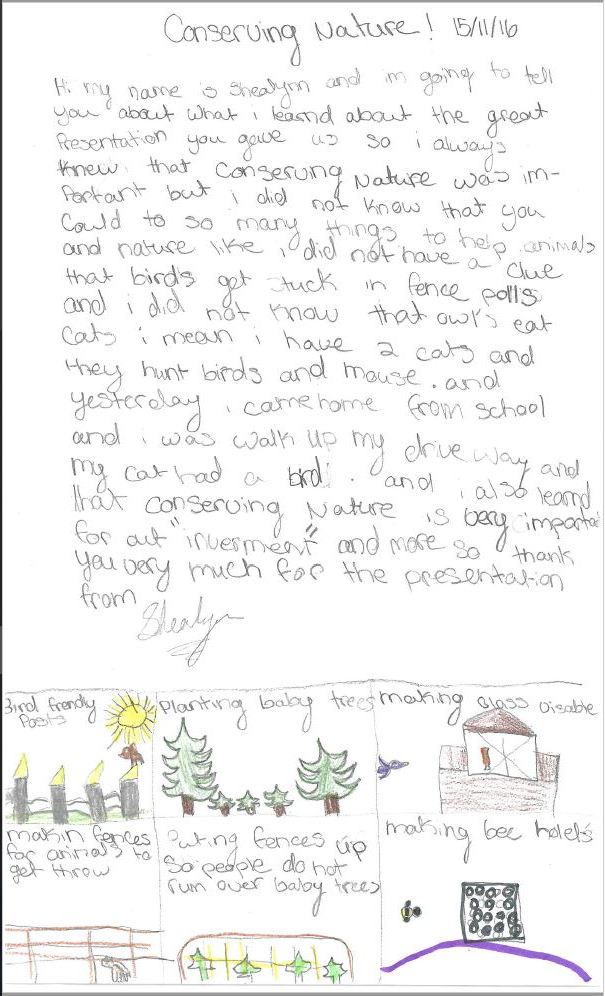 Conserving Nature! 15/11/16
Hi my name is Shealynn and im going to tell
you about what i learnd about the great
Presentation you gave us so i always
knew that conserving Nature was im-
portant but i did not know that you
Could to so many things to help animals
and nature like i did not have a clue
that birds get stuck in fence polls
and i did not know that owl's eat
Cats i mean i have 2 cats and
they hunt birds and mouse. and
yesterday i came home from school
and i was walk up my drive way and
my cat had a bird. and i also learnd
that conserving Nature is very importa
for out "inverment" and more so thank
you very much for the presentation
from
Shealyn
Bird frendly
Posts
Planting baby trees
making Glass Visable
makin fences
for animals to
get throw
Puting fences up
so people do not
rum over baby trees
making bee hotels